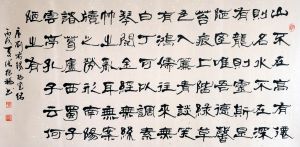 山不在高有僊
則名水不在深
有龍則靈斯是
陋室惟吾德馨
苔痕上階綠草
色入簾青談笑
有鴻儒往來無
白丁可以調素
琴閱金經無絲
竹之亂耳無案
牘之勞形南陽
諸葛廬西蜀子
雲亭孔子云何
陋之有
唐劉禹錫陋室銘
丙戌夏